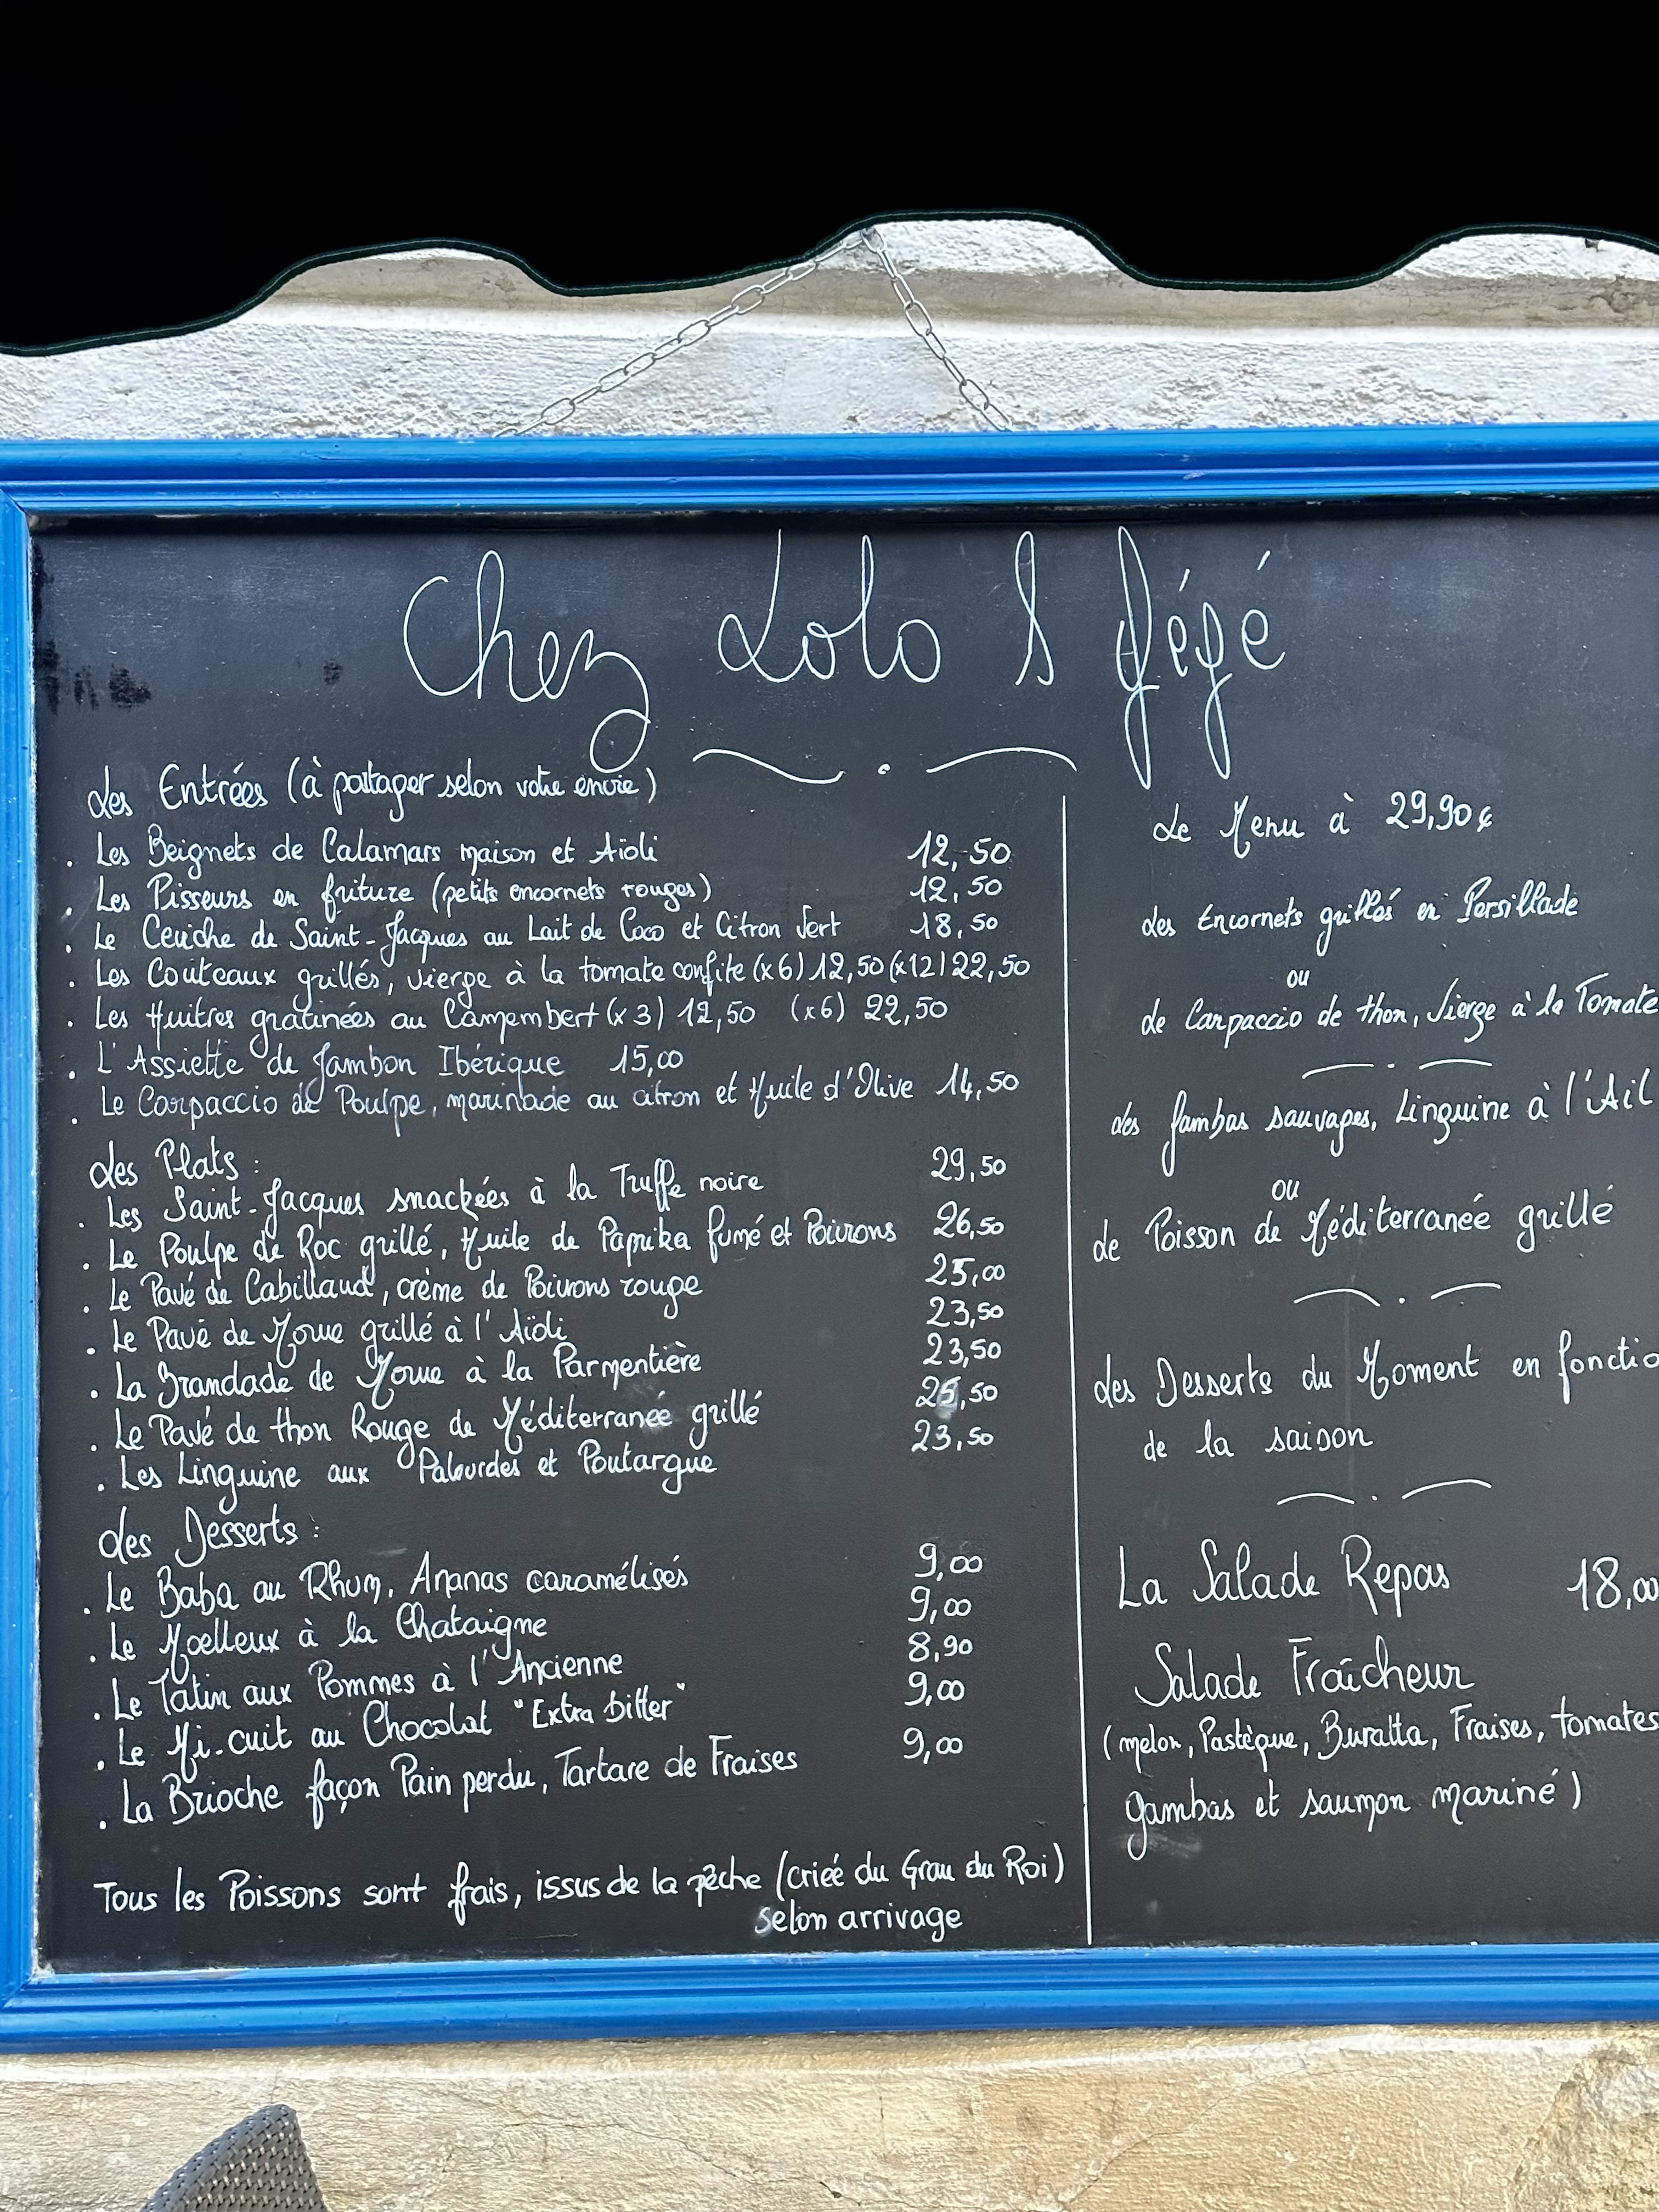 Chez Lolo & Gégé
Les Entrées (à partager selon votre envie)
. Les Beignets de Calamars maison et Aïoli 12,50
. Les Pisseurs en friture (petits encornets rouges) 12,50
. Le Ceviche de Saint-Jacques au Lait de Coco et Citron Vert 18,50
. Les Couteaux grillés, vierge à la tomate confite (x6) 12,50 (x12) 22,50
. Les Huîtres gratinées au Camembert (x3) 12,50 (x6) 22,50
. L'Assiette de Jambon Ibérique 15,00
. Le Carpaccio de Poulpe, marinade au citron et Huile d'Olive 14,50
Les Plats :
. Les Saint-Jacques snackées à la Truffe noire 29,50
. Le Poulpe de Roc grillé, Huile de Paprika fumé et Poivrons 26,50
. Le Pavé de Cabillaud, crème de Poivrons rouge 25,00
. Le Pavé de Morue grillé à l'Aïoli 23,50
. La Brandade de Morue à la Parmentière 23,50
. Le Pavé de thon Rouge de Méditerranée grillé 25,50
. Les Linguine aux Palourdes et Poutargue 23,50
Les Desserts :
. Le Baba au Rhum, Ananas caramélisés 9,00
. Le Moelleux à la Chataigne 9,00
. Le Tatin aux Pommes à l'Ancienne 8,90
. Le Mi-cuit au Chocolat "Extra bitter" 9,00
. La Brioche façon Pain perdu, Tartare de Fraises 9,00
Tous les Poissons sont frais, issus de la pêche (criée du Grau du Roi)
selon arrivage
Le Menu à 29,90€
Les Encornets grillés en Persillade
ou
Le Carpaccio de thon, Vierge à la Tomate
Les Gambas sauvages, Linguine à l'Ail
ou
Le Poisson de Méditerranée grillé
Les Desserts du Moment en fonctio
de la saison
La Salade Repas 18,00
Salade Fraîcheur
(melon, Pastèque, Buratta, Fraises, tomates
gambas et saumon mariné)